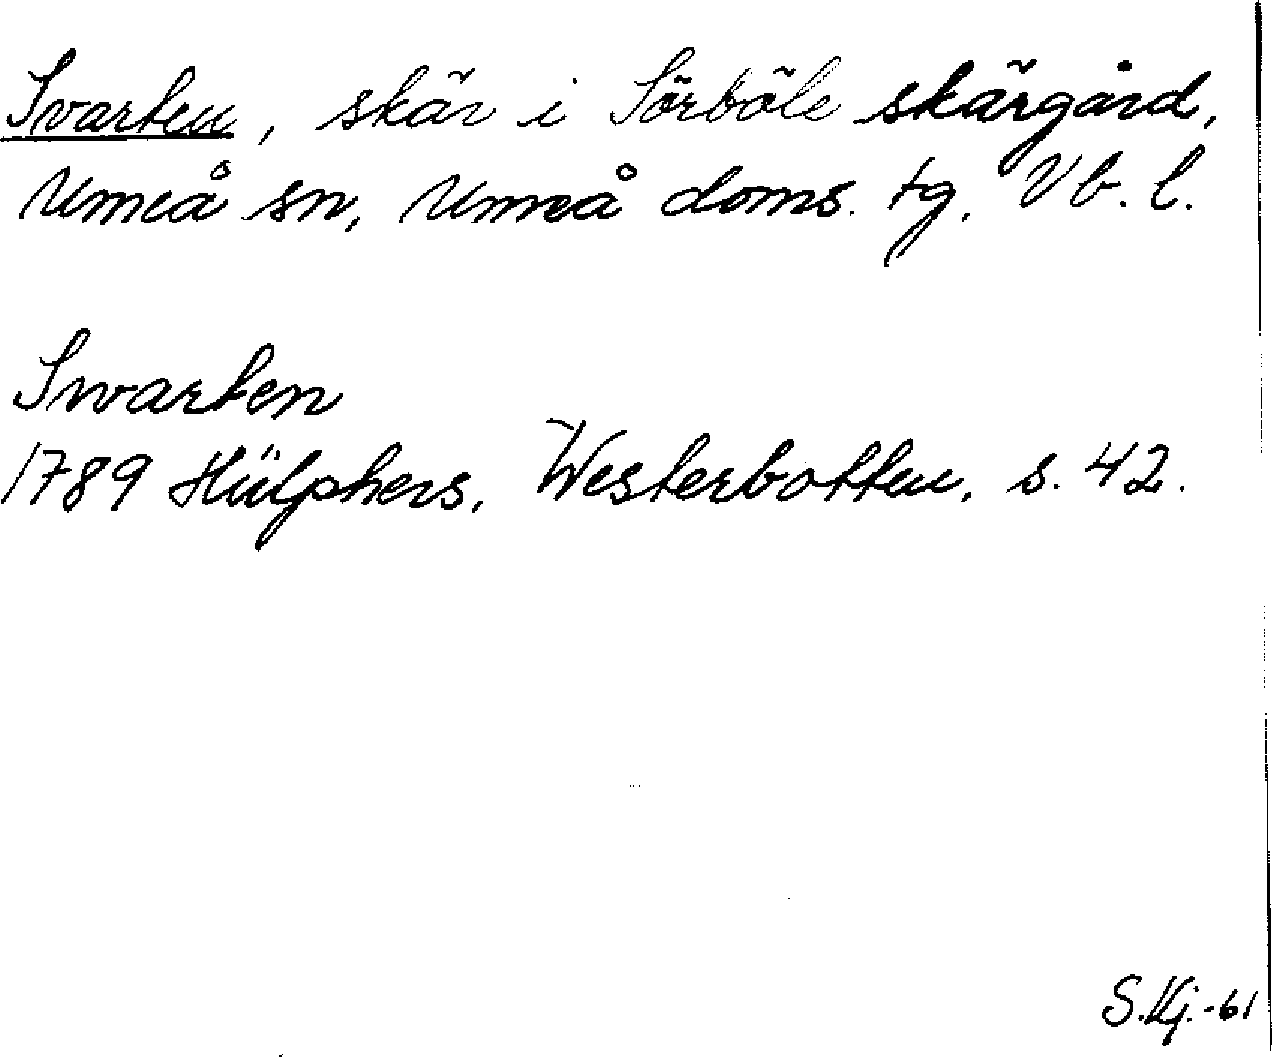 Svarten, skär i Sörböle skärgård,
Umeå sn, Umeå doms. tg. Vb. l.
Swarten
1789 Hülphers, Westerbotten, s. 42.
S.Kj.-61